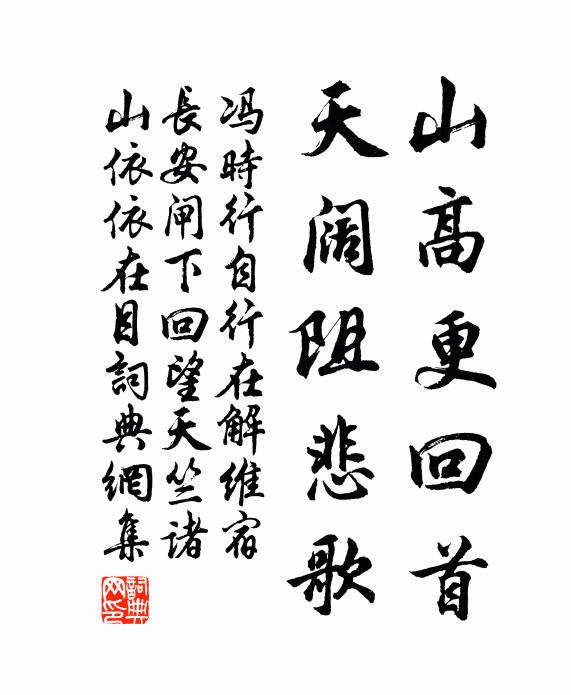 山高更回首
天阔阻悲歌
冯時行自行在解維宿
長安闸下回望天竺诸
山依依在目詞典網集
詞典网印